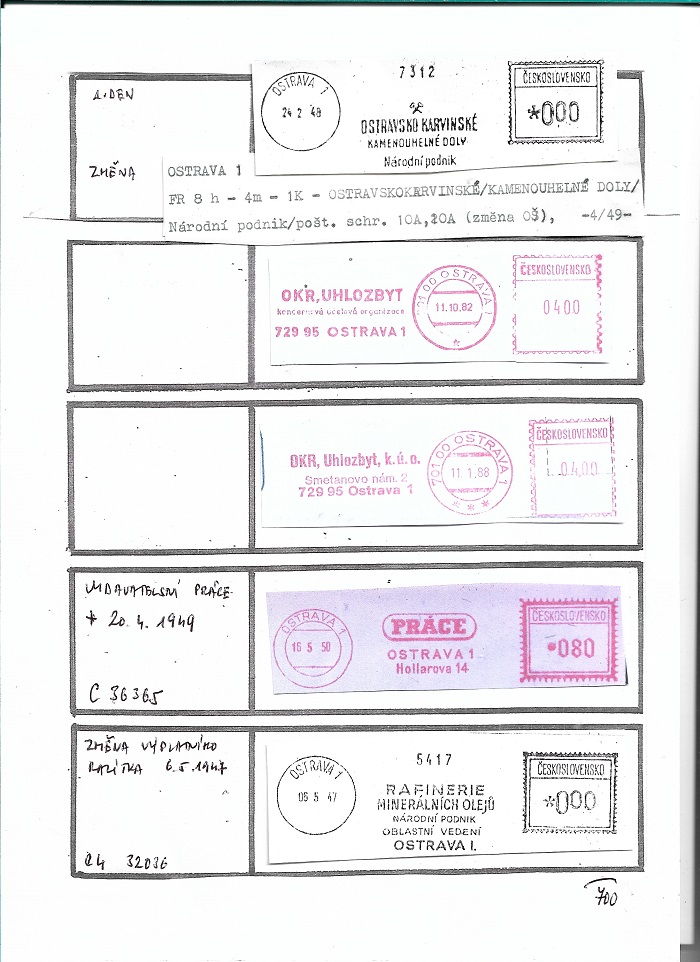 1. DEN
ZMĚNA
OSTRAVA 1
24 2 48
7312
OSTRAVSKO KARVINSKÉ
KAMENOUHELNÉ DOLY
Národní podnik
ČESKOSLOVENSKO
*000
OSTRAVA 1
FR 8 h - 4m - 1K - OSTRAVSKOKARVINSKÉ/KAMENOUHELNÉ DOLY/
Národní podnik/pošt. schr. 10A,20A (změna OŠ), -4/49-
OKR, UHLOZBYT
koncernová účelová organizace
729 95 OSTRAVA 1
701 00 OSTRAVA 1
11.10.82
ČESKOSLOVENSKO
0400
OKR, Uhlozbyt, k.ú.o.
Smetanovo nám. 2
729 95 Ostrava 1
701 00 OSTRAVA 1
11. 1.88
ČESKOSLOVENSKO
0400
VYDAVATELSNÍ PRÁCE
* 20. 4. 1949
C 36365
OSTRAVA 1
16 5 50
PRÁCE
OSTRAVA 1
Hollarova 14
ČESKOSLOVENSKO
*080
ZMĚNA VÝPLATNÍHO
RAZÍTKA 6.5.1947
C4 32036
OSTRAVA 1
06 5 47
5417
RAFINERIE
MINERÁLNÍCH OLEJŮ
NÁRODNÍ PODNIK
OBLASTNÍ VEDENÍ
OSTRAVA I.
ČESKOSLOVENSKO
*000
700